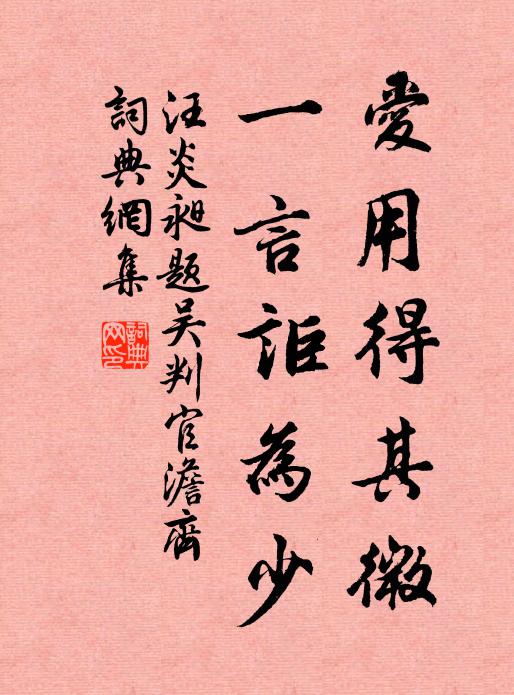 愛用得其微
一言詎為少
汪炎昶題吴判官澹齋
詞典網集
詞典
网印